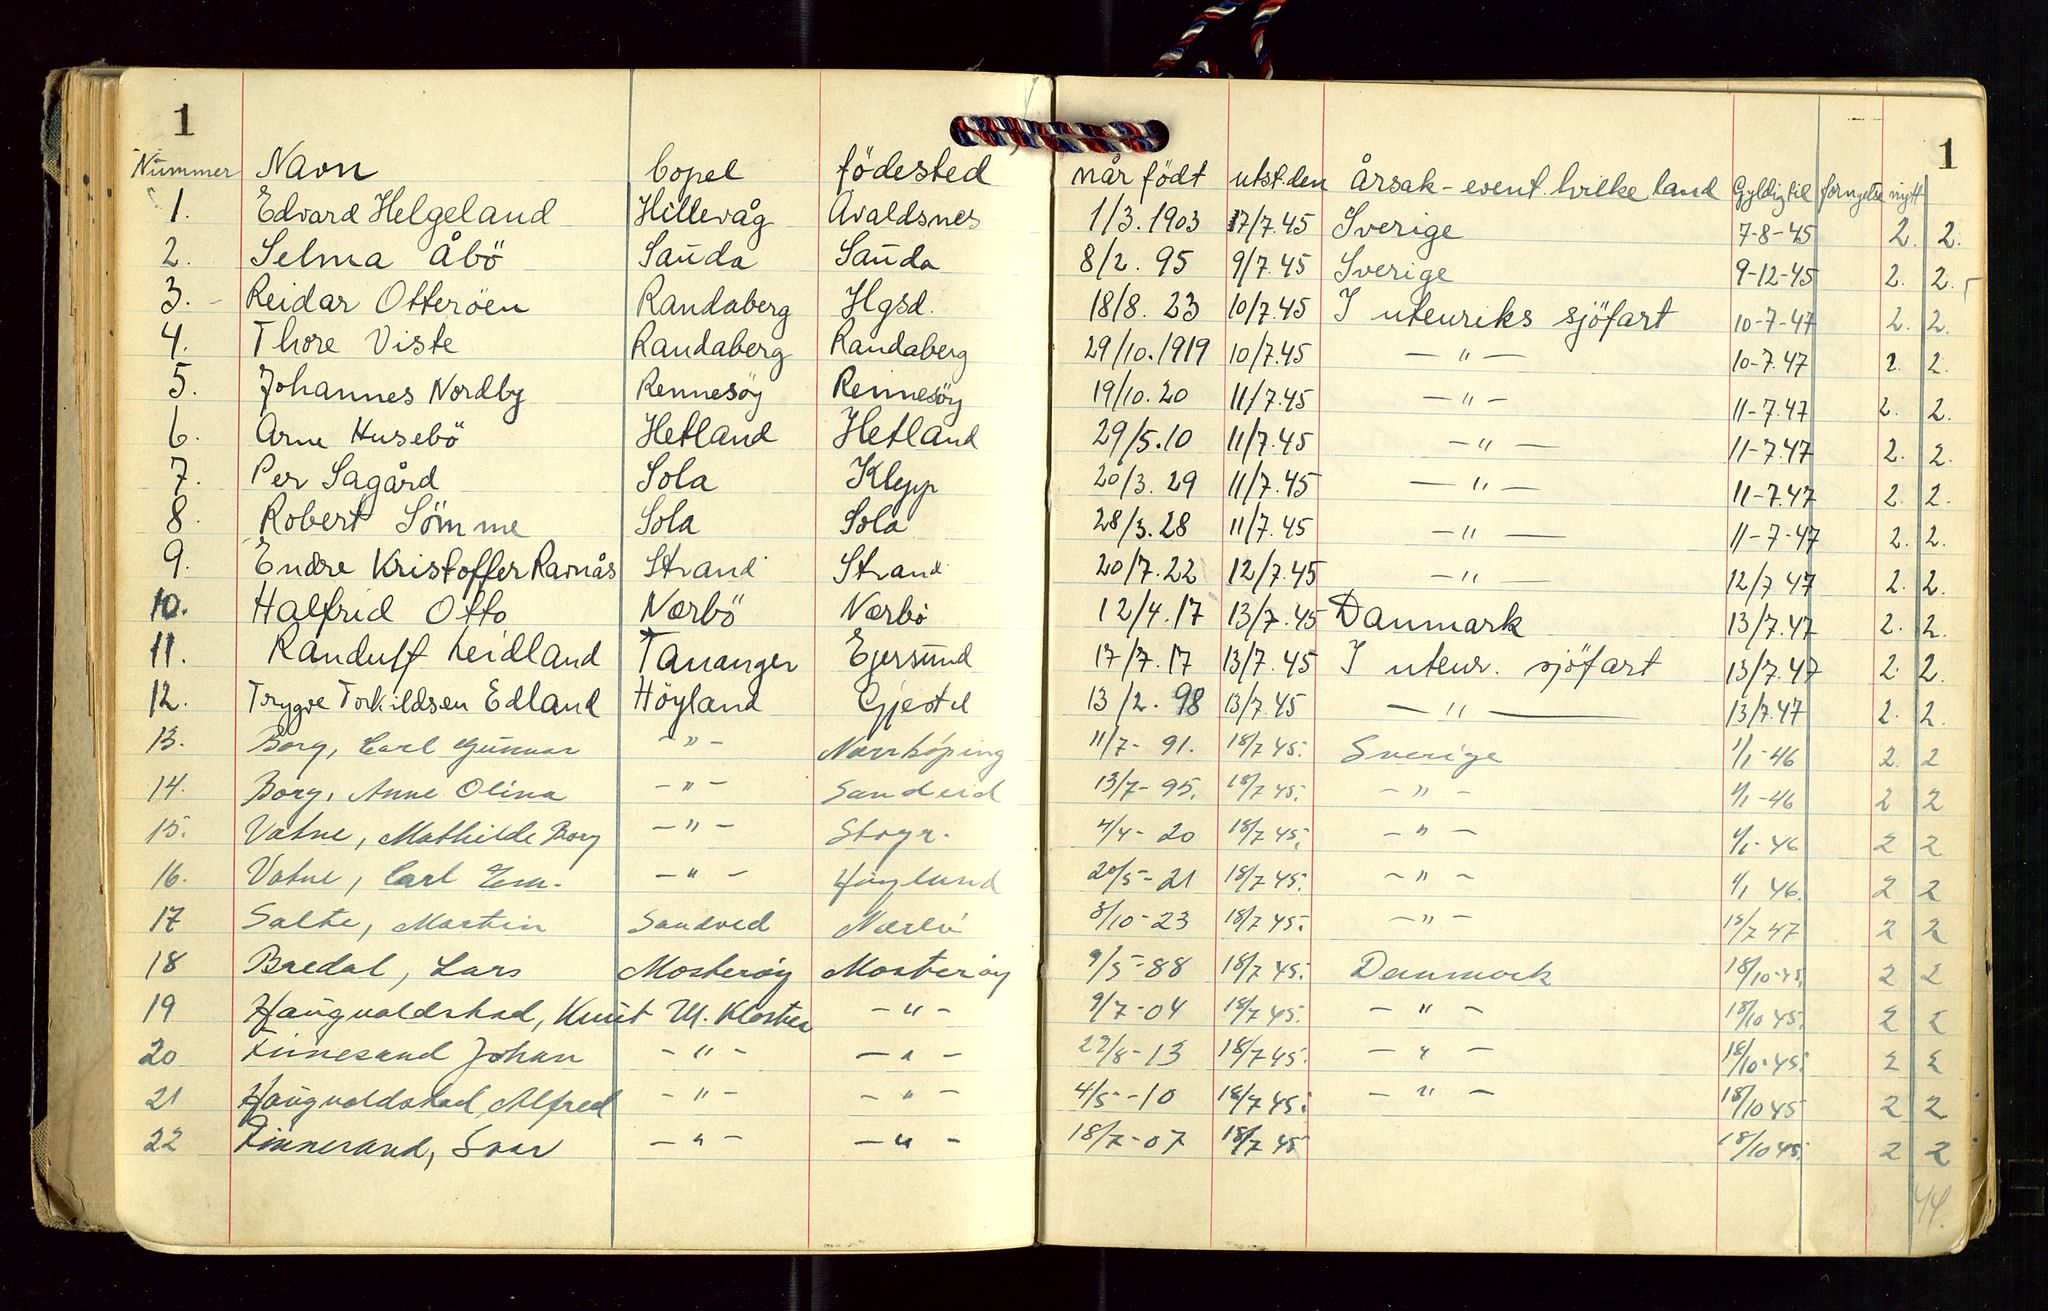 1 1
Nummer Navn bopel födested når födt utst.den Årsak - event. hvilke land Gyldig til fornyelse nytt
1. Edvard Helgeland Hillevåg Avaldsnes 1/3. 1903 17/7.45 Sverige 7-8-45 2. 2.
2. Selma Åbö Sauda Sauda 8/2. 95 9/7.45 Sverige 9-12-45 2. 2.
3. - Reidar Otteröen Randaberg Hgsd. 18/8. 23 10/7.45 I utenriks sjöfart 10-7-47 2. 2.
4. Thore Viste Randaberg Randaberg 29/10.1919 10/7.45 — " — 10-7.47 2. 2.
5. Johannes Nordby Rennesöy Rennesöy 19/10. 20 11/7.45 — " — 11-7.47 2. 2.
6. Arne Husebö Hetland Hetland 29/5.10 11/7.45 — " — 11-7.47 2. 2.
7. Per Sagård Sola Klepp 20/3. 29 11/7.45 — " — 11-7.47 2. 2.
8. Robert Sömme Sola Sola 28/3. 28 11/7.45 — " — 11-7-47 2. 2.
9. Endre Kristoffer Ravnås Strand Strand 20/7. 22 12/7.45 — " — 12/7 47 2. 2.
10. Halfrid Otto Nærbö Nærbö 12/4. 17 13/7.45 Danmark 13/7.47 2. 2.
11. Randulf Leidland Tananger Egersund 17/7. 17 13/7.45 I utenr. sjöfart 13/7.47 2. 2.
12. Trygve Torkildsen Edland Höyland Gjestel 13/2. 98 13/7.45 — " — 13/7.47 2. 2.
13. Borg, Carl Gunnar - " - Norrköping 11/7- 91. 18/7 45. Sverige 1/1-46 2. 2
14. Borg, Anne Olina - " - Sandeid 13/7- 95. 18/7 45. - " - 1/1-46 2 2
15. Vatne, Mathilde Borg - " - Stvgr. 4/4- 20 18/7 45. - " - 1/1-46 2 2
16. Vatne, Carl Em. - " - Höyland 20/5-21 18/7 45. - " - 1/1 46. 2 2
17 Salte, Martin Sandved Nærbö 3/10-23 18/7 45. - " - 18/7 47 2 2
18 Bredal, Lars Mosteröy Mosteröy 9/5-88 18/7 45. Danmark 18/10-45. 2 2
19 Haugvaldstad, Knut M. Kloster - " - 9/7-04 18/7 45. - " - 18/10 45. 2 2
20 Finnesand Johan - " - - " - 27/8-13 18/7 45. - " - 18/10-45. 2 2
21 Haugvaldstad, Alfred - " - - " - 4/5-10 18/7 45. - " - 18/10 45 2 2
22 Finnesand, Ivar - " - - " - 18/7-07 18/7 45 18/10 45. 2 2
44.